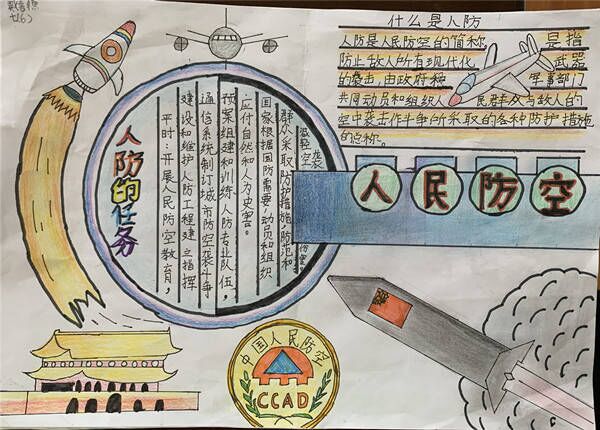 什么是人防
人防是人民防空的简称 是指
防止敌人所有现代化 武器
的袭击,由政府和 军事部门
共同动员和组织人 民群众与敌人的
空中袭击作斗争所采取的各种防护措施
的总称。
人民防空
人防的任务
平时:开展人民防空教育,
建设和维护人防工程建立指挥
通信系统制订城市防空袭斗争
预案组建和训练人防专业队伍,
应付自然和人为灾害。
国家根据国防需要,动员和组织
群众采取防护措施,防范和
减轻空袭
中国人民防空
CCAD